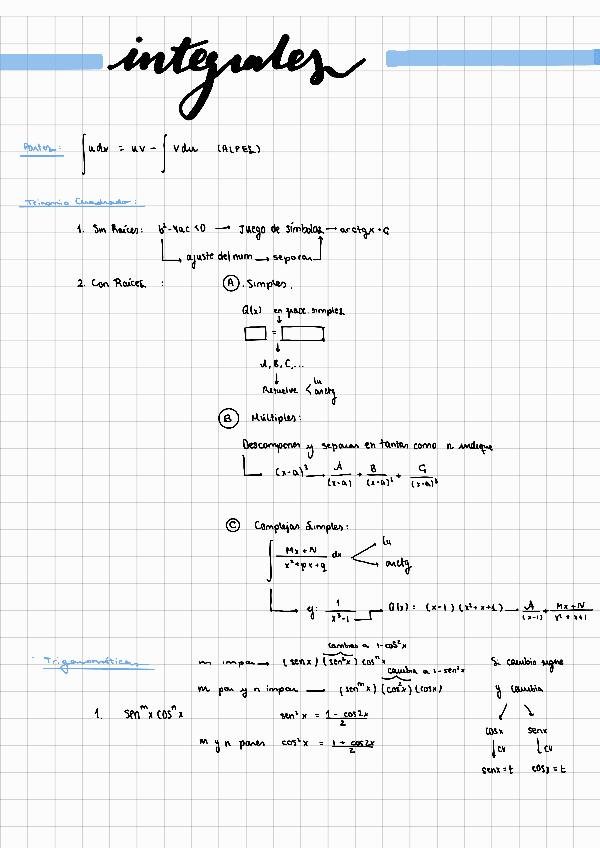 integrales
Partes: ∫ u dv = uv - ∫ v du (ALPES)
Trinomio Cuadrado:
1. Sin Raíces: b²-4ac <0 → Juego de símbolos → arctgx + C
ajuste del num → separar
2. Con Raíces : A. Simples.
Q(x) en fracc. simples
□ = □
A, B, C, ...
Resuelve < lu
arctg
B Múltiples:
Descomponer y separar en tantas como n indique
(x-a)³ → A/(x-a) + B/(x-a)² + C/(x-a)³
C Complejas Simples:
∫ Mx+N / x²+px+q dx < lu
arctg
y: 1/x³-1 → Q(x): (x-1)(x²+x+1) → A/(x-1) + Mx+N/x²+x+1
Trigonométricas
cambias a 1-cos²x
m impar → (senx)(senⁿx) cosⁿx
Si cambio signo
cambia a 1-sen²x
m par y n impar → (senᵐx)(cos²x)(cosx)
y cambia
1. senᵐx cosⁿx
sen²x = 1-cos2x/2
cosx senx
m y n pares cos²x = 1+cos2x/2
cv cv
senx=t cosx=t